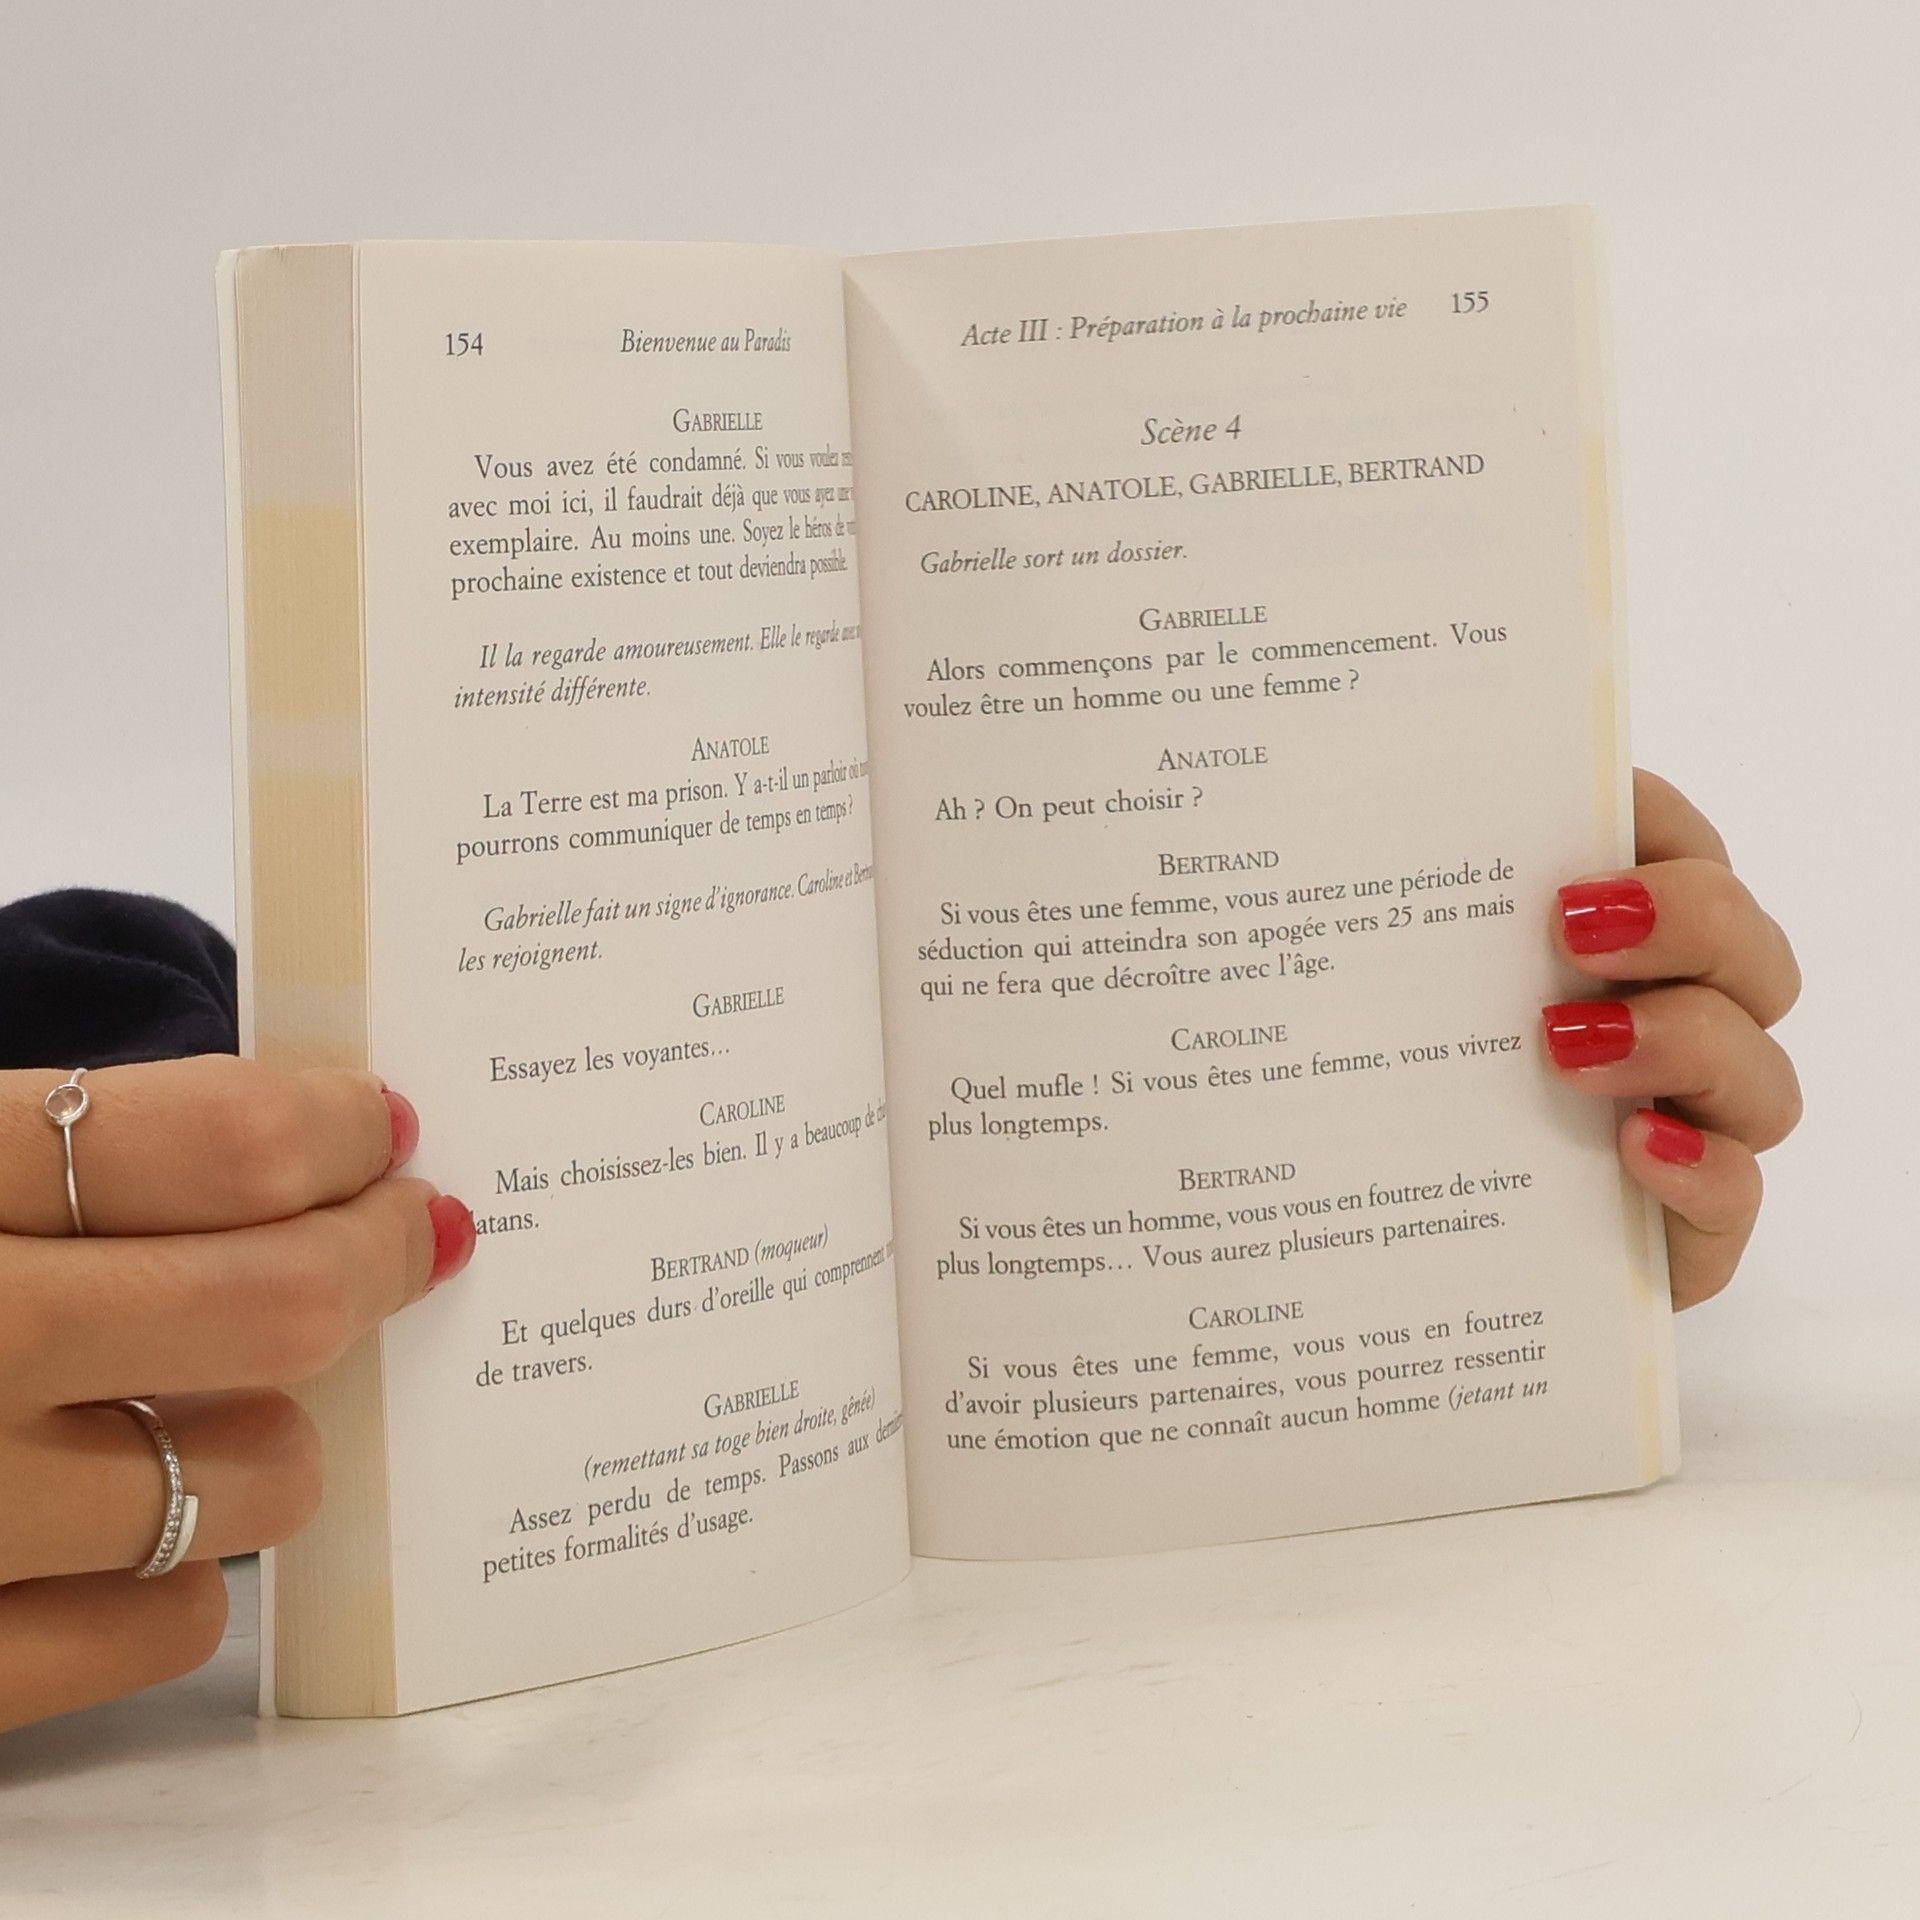 154 Bienvenue au Paradis
GABRIELLE
Vous avez été condamné. Si vous voulez
avec moi ici, il faudrait déjà que vous ayez une
exemplaire. Au moins une. Soyez le héros de
prochaine existence et tout deviendra possible.
Il la regarde amoureusement. Elle le regarde
intensité différente.
ANATOLE
La Terre est ma prison. Y a-t-il un parloir où
pourrons communiquer de temps en temps ?
Gabrielle fait un signe d'ignorance. Caroline et
les rejoignent.
GABRIELLE
Essayez les voyantes…
CAROLINE
Mais choisissez-les bien. Il y a beaucoup de
latans.
BERTRAND (moqueur)
Et quelques durs d'oreille qui comprennent
de travers.
GABRIELLE
(remettant sa toge bien droite, gênée)
Assez perdu de temps. Passons aux
petites formalités d'usage.
Acte III : Préparation à la prochaine vie 155
Scène 4
CAROLINE, ANATOLE, GABRIELLE, BERTRAND
Gabrielle sort un dossier.
GABRIELLE
Alors commençons par le commencement. Vous
voulez être un homme ou une femme ?
ANATOLE
Ah ? On peut choisir ?
BERTRAND
Si vous êtes une femme, vous aurez une période de
séduction qui atteindra son apogée vers 25 ans mais
qui ne fera que décroître avec l'âge.
CAROLINE
Quel mufle ! Si vous êtes une femme, vous vivrez
plus longtemps.
BERTRAND
Si vous êtes un homme, vous vous en foutrez de vivre
plus longtemps… Vous aurez plusieurs partenaires.
CAROLINE
Si vous êtes une femme, vous vous en foutrez
d'avoir plusieurs partenaires, vous pourrez ressentir
une émotion que ne connaît aucun homme (jetant un